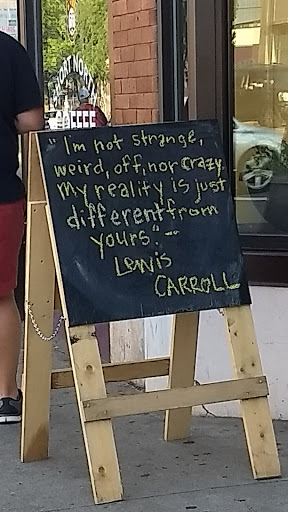 FORT NORTH
"I'm not strange,
weird, off, nor crazy,
my reality is just
different from
yours." --
Lewis
CARROLL